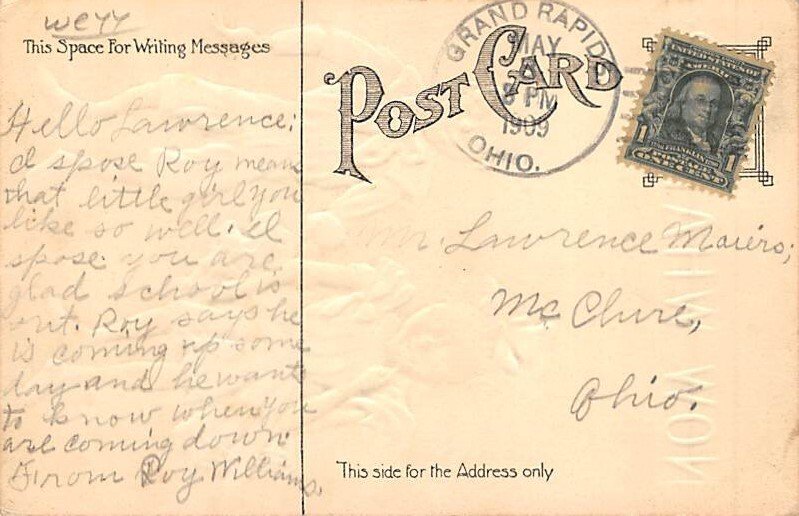 wc77
This Space For Writing Messages
Hello Lawrence:
I spose Roy means
that little girl you
like so well. I
spose you are
glad school is
out. Roy says he
is coming up some
day and he wants
to know when you
are coming down.
From Roy Williams.
POST CARD
GRAND RAPIDS
MAY
6 PM
1909
OHIO.
UNITED STATES OF AMERICA
1
1
FRANKLIN
Mr. Lawrence Maiers,
McClure,
Ohio.
This side for the Address only